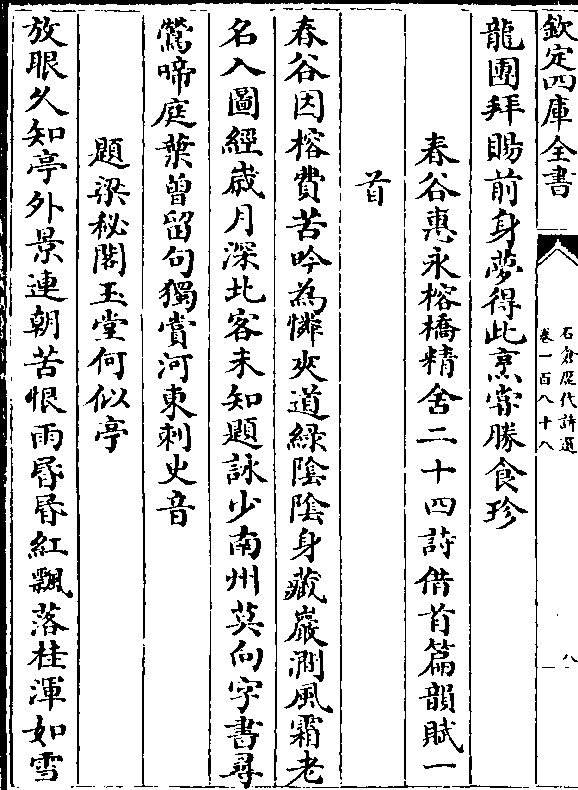 欽定四庫全書
石倉歷代詩選
卷一百八十八
八
龍團拜賜前身夢得此烹嘗勝食珍
春谷惠永榕橋精舍二十四詩借首篇韻賦一
首
春谷因榕費苦吟為憐夾道綠陰陰身藏巖澗風霜老
名入圖經歲月深北客未知題詠少南州莫向字書尋
鶯啼庭葉曾留句獨賞河東刺史音
題梁秘閣玉堂何似亭
放眼久知亭外景連朝苦恨雨昬昬紅飄落桂渾如雪